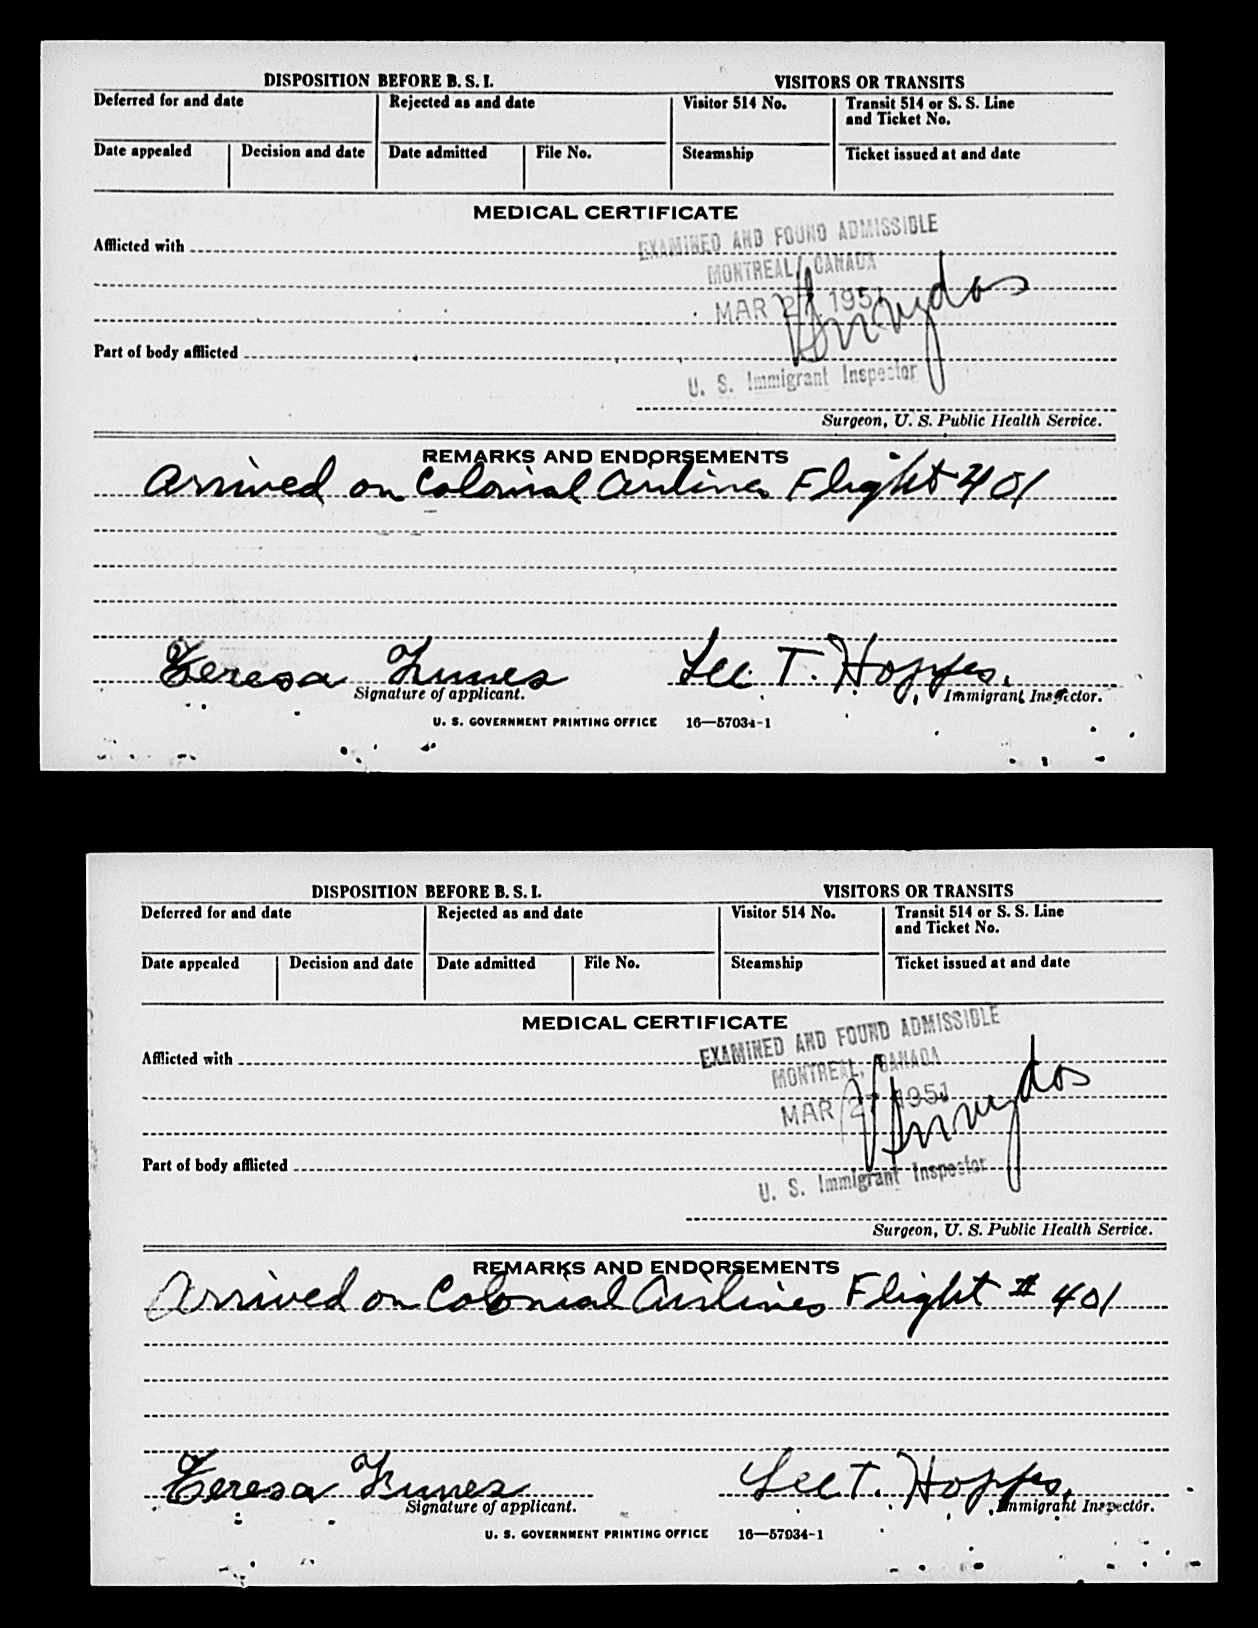 DISPOSITION BEFORE B. S. I. VISITORS OR TRANSITS
Deferred for and date Rejected as and date Visitor 514 No. Transit 514 or S. S. Line
and Ticket No.
Date appealed Decision and date Date admitted File No. Steamship Ticket issued at and date
MEDICAL CERTIFICATE
EXAMINED AND FOUND ADMISSIBLE
Afflicted with
MONTREAL, CANADA
MAR 1951
Part of body afflicted
U. S. Immigrant Inspector
Surgeon, U. S. Public Health Service.
REMARKS AND ENDORSEMENTS
Arrived on Colonial Airlines Flight 401
Teresa Funes Lee T. Hoppes.
Signature of applicant. Immigrant Inspector.
U. S. GOVERNMENT PRINTING OFFICE 16—57034-1
DISPOSITION BEFORE B. S. I. VISITORS OR TRANSITS
Deferred for and date Rejected as and date Visitor 514 No. Transit 514 or S. S. Line
and Ticket No.
Date appealed Decision and date Date admitted File No. Steamship Ticket issued at and date
MEDICAL CERTIFICATE
EXAMINED AND FOUND ADMISSIBLE
Afflicted with
MONTREAL, CANADA
MAR 27 1951
Part of body afflicted
U. S. Immigrant Inspector
Surgeon, U. S. Public Health Service.
REMARKS AND ENDORSEMENTS
Arrived on Colonial Airlines Flight # 401
Teresa Funes Lee T. Hoppes.
Signature of applicant. Immigrant Inspector.
U. S. GOVERNMENT PRINTING OFFICE 16—57034-1